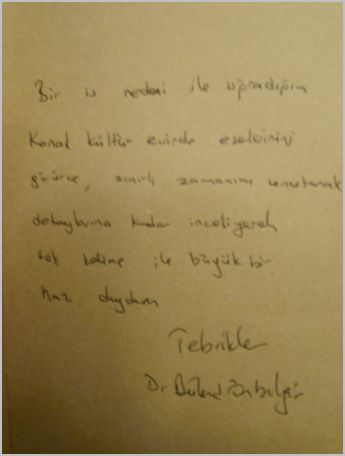 Bir iş nedeni ile uğradığım
Konak kültür evinde eserlerinizi
görünce, sınırlı zamanımı unutarak
detaylarına kadar inceliyerek
tek kelime ile büyük bir
haz duydum
Tebrikler
Dr Bülend